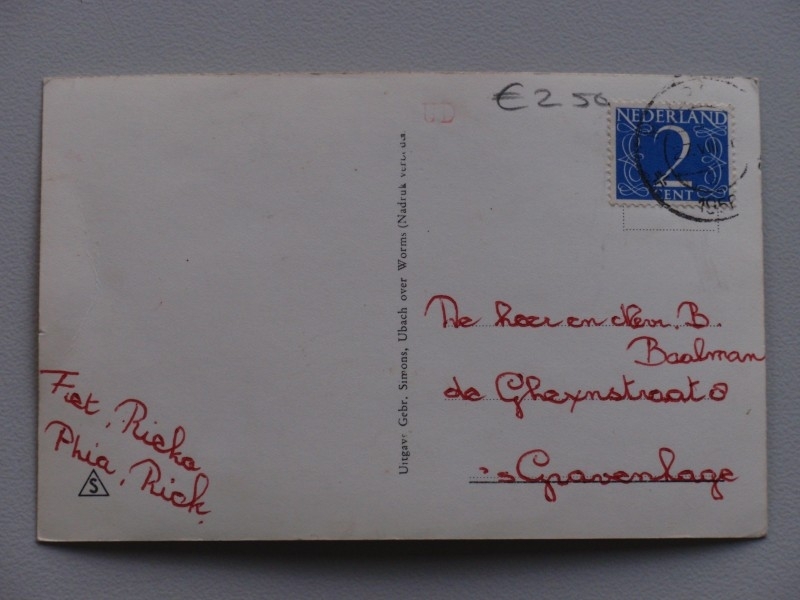 € 2 50
NEDERLAND
2
CENT
Uitgave Gebr. Simons, Ubach over Worms (Nadruk verb. d.a.
De heer en Mevr. B.
Baalman
de Gheynstraat 8
's Gravenhage
Fiet, Rieka
Phia, Riek.
S